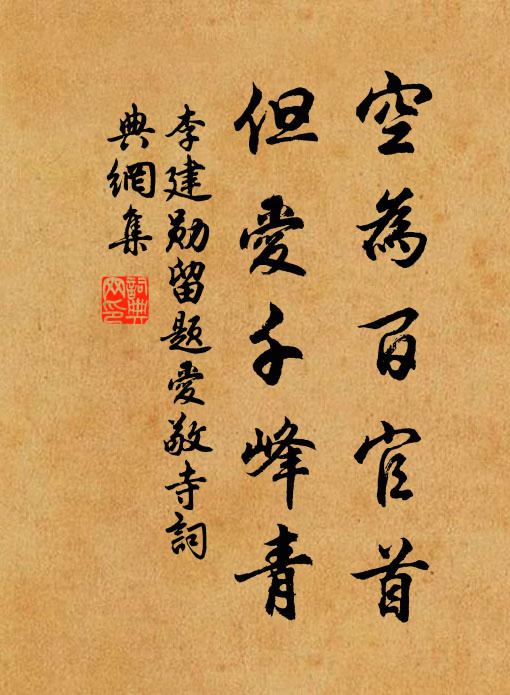 空為百官首
但愛千峰青
李建勛留題愛敬寺詞
典網集
詞典
网印